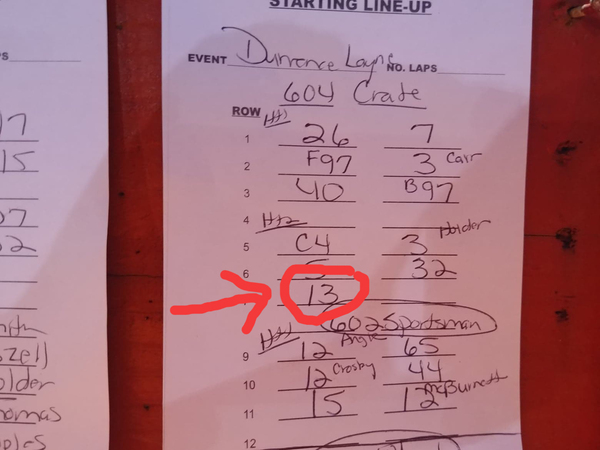 STARTING LINE-UP
EVENT Durrence Layne NO. LAPS
604 Crate
ROW Ht1
1 26 7
2 F97 3 Carr
3 40 B97
4 Ht2
5 C4 3 Holder
6 5 32
13
602 Sportsman
Ht1
9 12 Angie 65
10 12 Crosby 44
11 15 12 McBurnett
12
17
15
07
52
zell
older
homas
ples